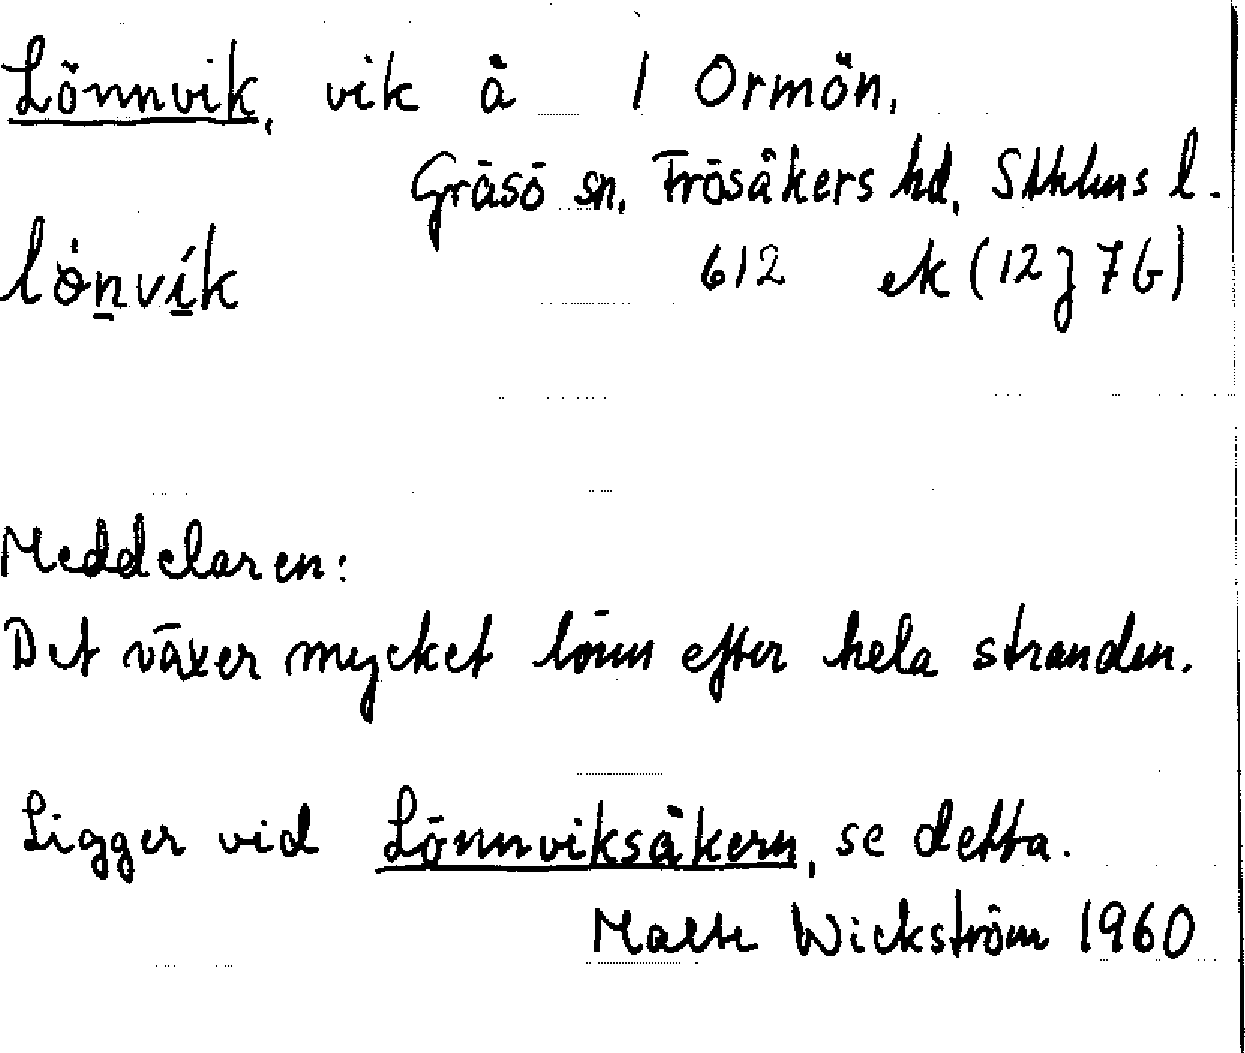 Lönnvik, vik å 1 Ormön,
Gräsö sn, Frösåkers hd, Sthlms l.
lö̀nvík 612 ek (12J 7b)
Meddelaren:
Det växer mycket lönn efter hela stranden.
Ligger vid Lönnviksåkern, se detta.
Malte Wickström 1960